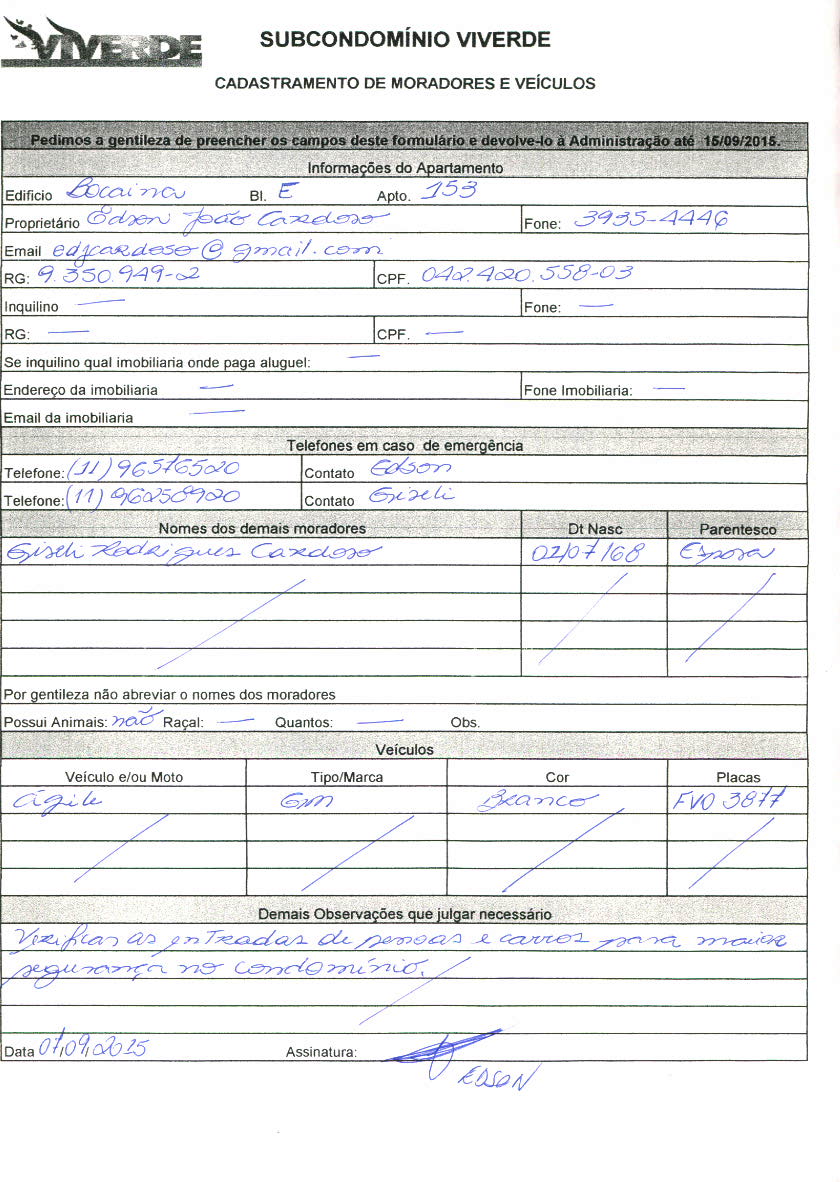 VIVERDE
SUBCONDOMÍNIO VIVERDE
CADASTRAMENTO DE MORADORES E VEÍCULOS
Pedimos a gentileza de preencher os campos deste formulário e devolve-lo à Administração até 15/09/2015.
Informações do Apartamento
Edificio Bocaina Bl. E Apto. 153
Proprietário Edson João Cardoso Fone: 3935-4446
Email edjcardoso@gmail.com
RG: 9.350.949-2 CPF. 042.420.558-03
Inquilino — Fone: —
RG: — CPF. —
Se inquilino qual imobiliaria onde paga aluguel: —
Endereço da imobiliaria — Fone Imobiliaria: —
Email da imobiliaria —
Telefones em caso de emergência
Telefone: (11) 96576520 Contato Edson
Telefone: (11) 962508920 Contato Giseli
Nomes dos demais moradores Dt Nasc Parentesco
Giseli Rodrigues Cardoso 02/07/68 Esposa
Por gentileza não abreviar o nomes dos moradores
Possui Animais: não Raçal: — Quantos: — Obs.
Veículos
Veículo e/ou Moto Tipo/Marca Cor Placas
Ágile GM Branco FVO 3877
Demais Observações que julgar necessário
Verificar as entradas de pessoas e carros para maior
segurança no condomínio.
Data 07/09/2015 Assinatura:
EDSON